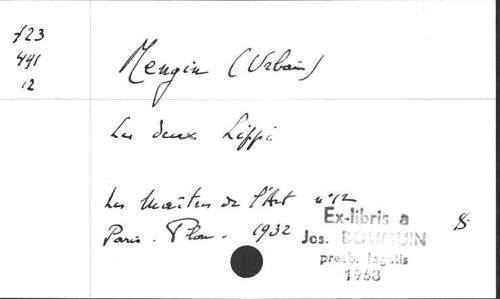 723
491
12
Mengin (Urbain)
Les deux Lippi
Les Maîtres de l'Art n° 12
Paris. Plon. 1932
Ex-libris a
Jos. BOUGUIN
presb. legatis
1968